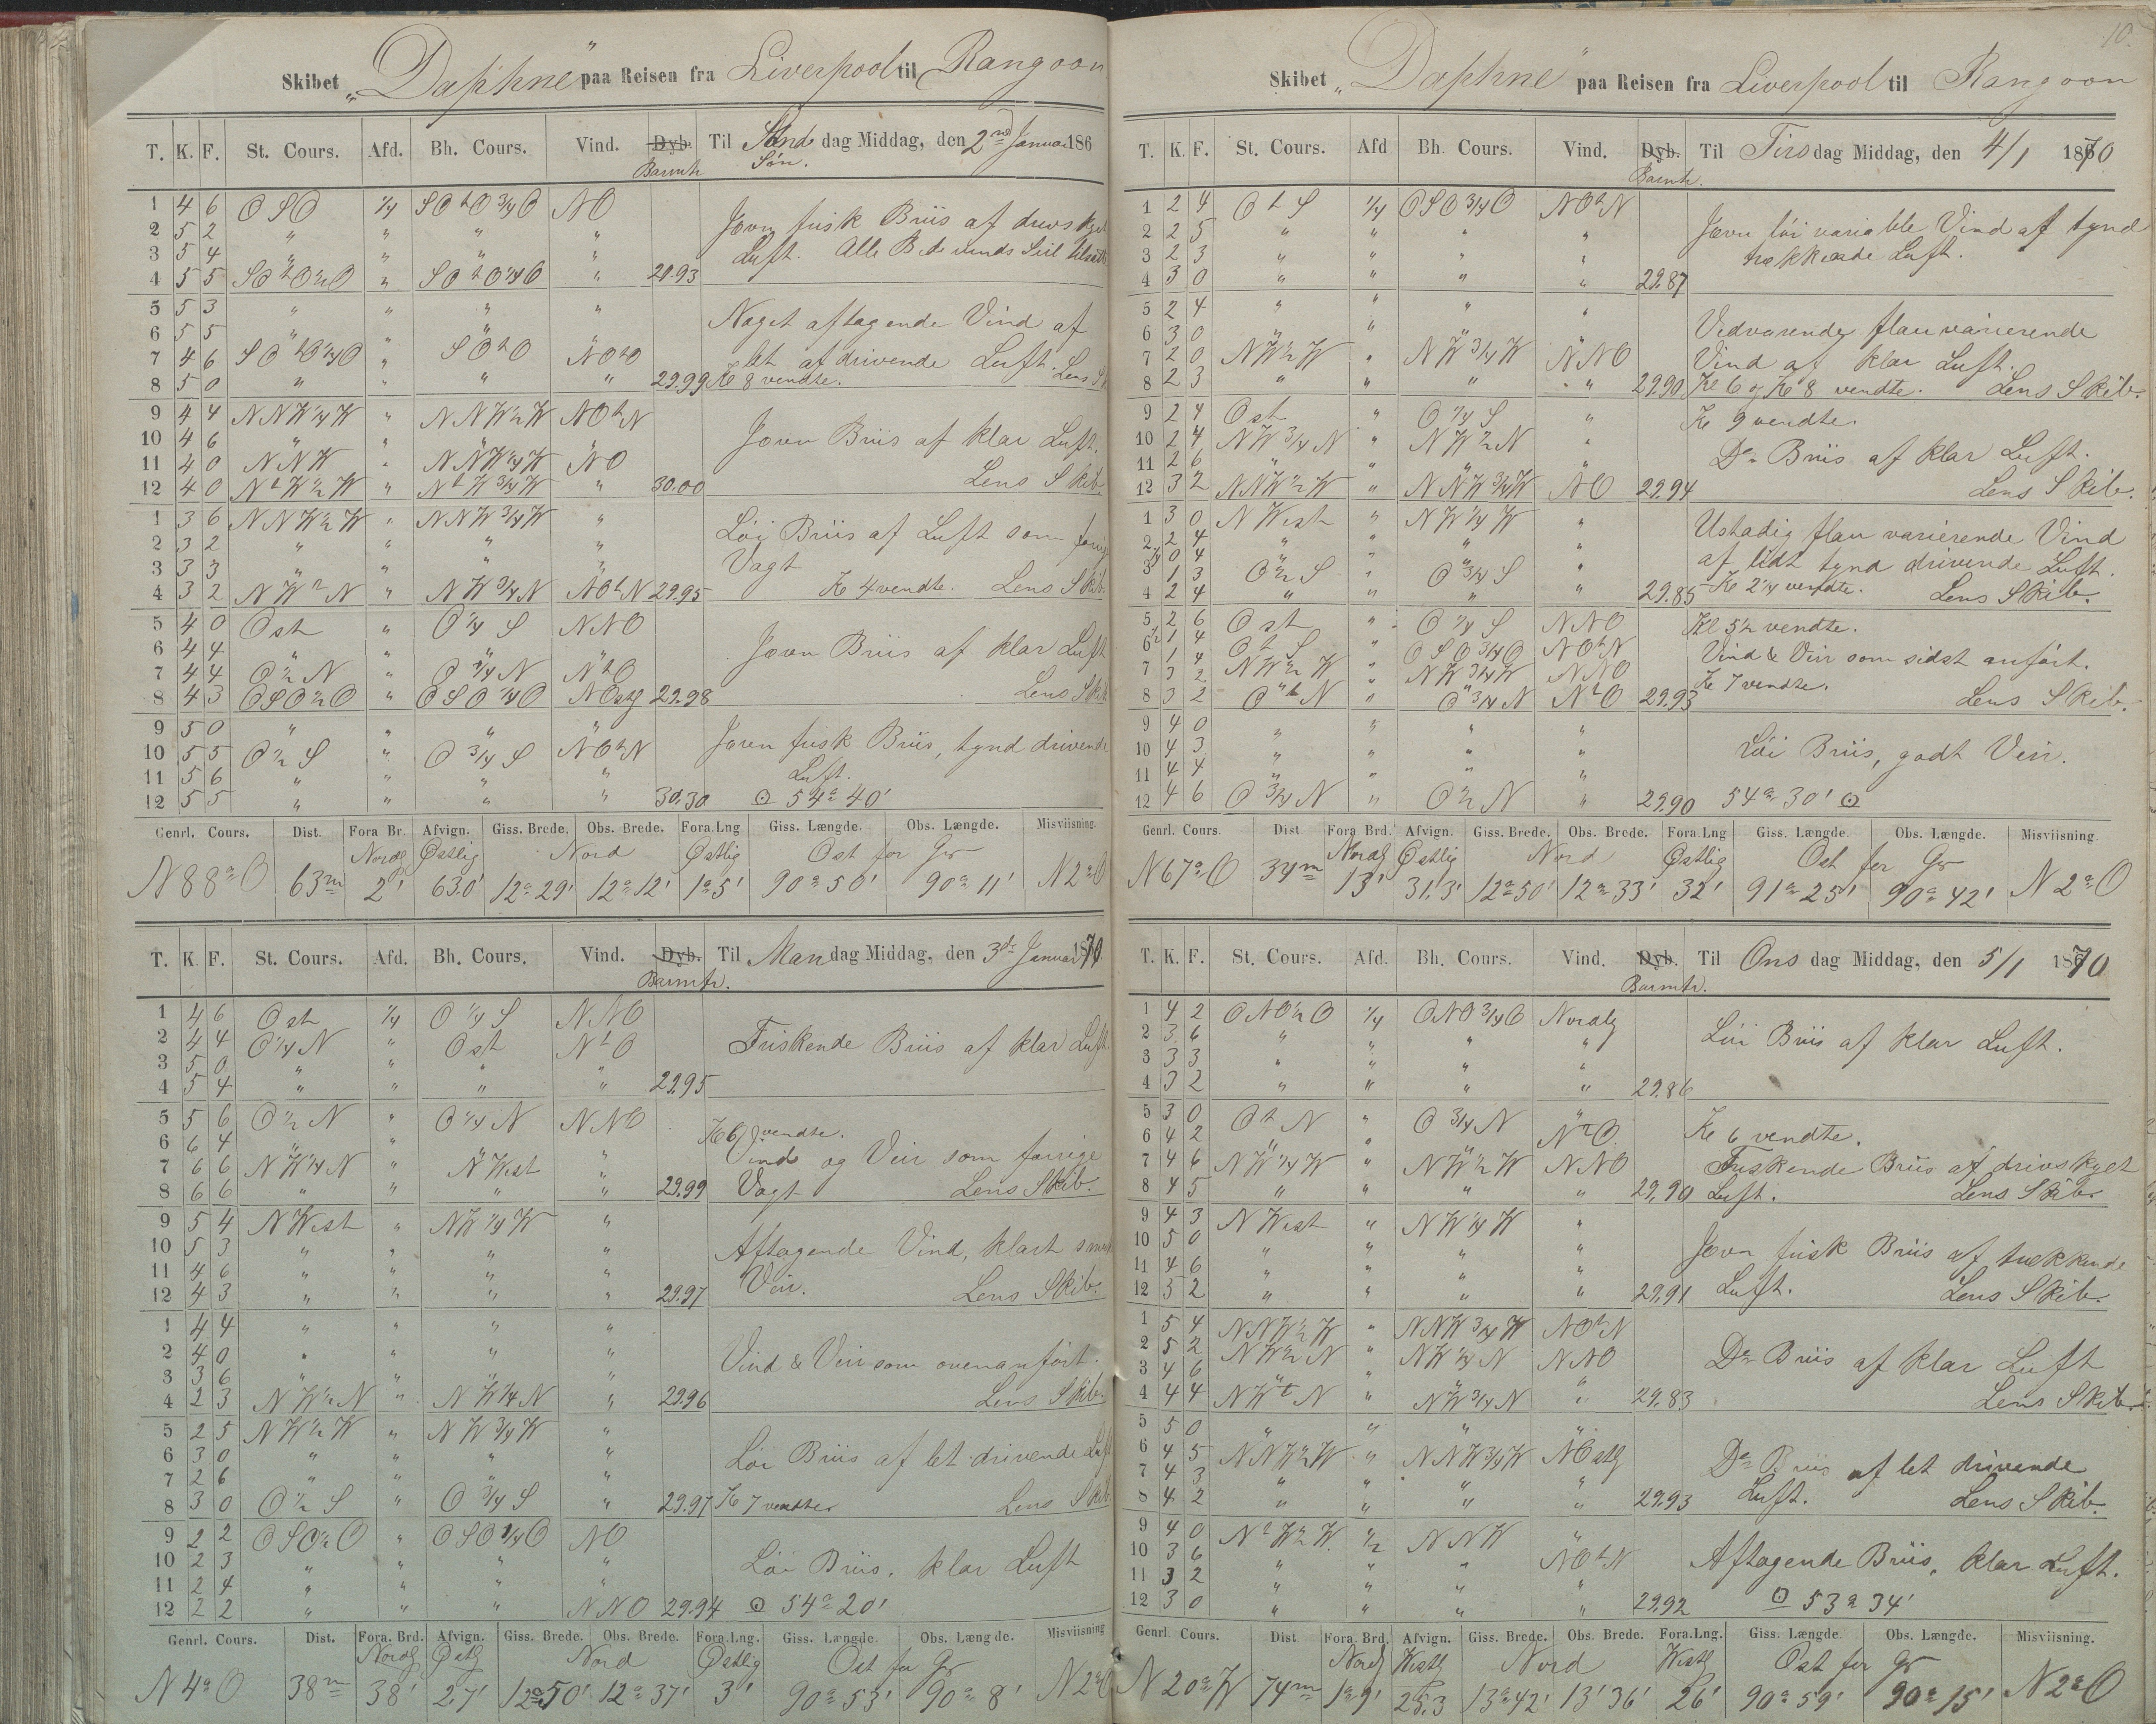 Skibet „Daphne“ paa Reisen fra Liverpool til Rangoon
T. K. F. St. Cours. Afd. Bh. Cours. Vind. Dyb. Barmtr Til Søn dag Middag, den 2nd Januar 186
1 4 6 OSO 1/4 SOtO 3/4 O NO
2 5 2 " " " "
3 5 4 " " " "
4 5 5 SOtO 1/2 O " SOtO 1/4 O " 29.93
Jævn frisk Briis af drivskyet
Luft. Alle Bidevinds Seil tilsatte
5 5 3 " " " "
6 5 5 " " "
7 4 6 SOtO 1/4 O " SOtO NOtO
8 5 0 " " " " 29.99
Noget aftagende Vind af
let afdrivende Luft. Lens
Kl 8 vendte.
9 4 4 NNW 1/4 W " NNW 1/2 W NOtN
10 4 6 " " " "
11 4 0 NNW " NNW 1/4 W NO
12 4 0 NtW 1/2 W " NtW 3/4 W " 30.00
Jævn Briis af klar Luft.
Lens Skib.
1 3 6 NNW 1/2 W " NNW 3/4 W "
2 3 2 " " " "
3 3 3 " " " "
4 3 2 NWtN " NW 3/4 N NOtN 29.95
Løi Briis af Luft som forrige
Vagt
Kl 4 vendte. Lens Skib.
5 4 0 Ost " O 1/4 S NNO
6 4 4 " " "
7 4 4 O 1/2 N " O 1/4 N NtO
8 4 3 OSO 1/2 O " OSO 1/4 O NOstlg 29.98
Jævn Briis af klar Luft
Lens Skib
9 5 0 " " " "
10 5 5 O 1/2 S " O 3/4 S NOtN
11 5 6 " " " "
12 5 5 " " " " 30.30
Jævn frisk Briis, tynd drivende
Luft.
⊙ 54° 40'
Genrl. Cours. Dist. Fora Br. Afvign. Giss. Brede. Obs. Brede. Fora.Lng Giss. Længde. Obs. Længde. Misviisning.
Nordlg Østlig Nord Østlig Ost for Gr
N 88° O 63m 2' 63.0' 12° 29' 12° 12' 1° 5' 90° 50' 90° 11' N 2° O
T. K. F. St. Cours. Afd. Bh. Cours. Vind. Dyb. Barmtr. Til Man dag Middag, den 3de Januar 1870
1 4 6 Ost 1/4 O 1/4 S NNO
2 4 4 O 1/4 N " Ost NtO
3 5 0 " " " "
4 5 4 " " " " 29.95
Friskende Briis af klar Luft
5 5 6 O 1/2 N " O 1/4 N NNO
6 6 4 " " "
7 6 6 NW 1/4 N " NWest "
8 6 6 " " " " 29.99
Kl 6 vendte.
Vind og Veir som forrige
Vagt Lens Skib.
9 5 4 NWest " NW 1/4 W "
10 5 3 " " " "
11 4 6 " " " "
12 4 3 " " " " 29.97
Aftagende Vind, klart smukt
Veir. Lens Skib.
1 4 4 " " " "
2 4 0 " " " "
3 3 6 " " " "
4 2 3 NW 1/2 N " NW 1/4 N " 29.96
Vind & Veir som ovenanført.
Lens Skib.
5 2 5 NW 1/2 W " NW 3/4 W "
6 3 0 " " " "
7 2 6 " " " "
8 3 0 O 1/2 S " O 3/4 S " 29.97
Løi Briis af let drivende Luft
Kl 7 vendte Lens Skib
9 2 2 OSO 1/2 O " OSO 1/4 O NO
10 2 3 " " " "
11 2 4 " " " "
12 2 2 " " " NNO 29.94
Løi Briis. klar Luft
⊙ 54° 20'
Genrl. Cours. Dist. Fora. Brd. Afvign. Giss. Brede. Obs. Brede. Fora.Lng. Giss. Længde. Obs. Længde. Misviisning
Nordlg Østlg Nord Østlig Ost for Gr
N 4° O 38m 38' 2,7' 12° 50' 12° 37' 3' 90° 53' 90° 8' N 2° O
10.
Skibet „Daphne“ paa Reisen fra Liverpool til Rangoon
T. K. F. St. Cours. Afd Bh. Cours. Vind. Dyb. Barmtr. Til Tirs dag Middag, den 4/1 1870
1 2 4 OtS 1/4 OSO 3/4 O NOtN
2 2 5 " " " "
3 2 3 " " " "
4 3 0 " " " " 29.87
Jævn løi variable Vind af tynd
trækkende Luft.
5 2 4 " " " "
6 3 0 " "
7 2 0 NW 1/2 W " NW 3/4 W NNO
8 2 3 " " " " 29.90
Vedvarende flau varierende
Vind af klar Luft.
Kl 6 og Kl 8 vendte. Lens Skib.
9 2 4 Ost " O 1/4 S "
10 2 4 NW 3/4 N " NW 1/2 N "
11 2 6 " " " "
12 3 2 NNW 1/2 W " NNW 3/4 W NO 29.94
Kl 9 vendte.
Do Briis af klar Luft.
Lens Skib.
1 3 0 NWest " NW 1/4 W "
2 2 4 " " " "
1/4 0 4
3 1 3 O 1/2 S " O 3/4 S "
4 2 4 " " " " 29.85
Ustadig flau varierende Vind
af lidt tynd drivende Luft.
Kl 2 1/4 vendte. Lens Skib.
5 2 6 Ost " O 1/4 S NNO
1/2 1 4 OtS " OSO 3/4 O NOtN
6 1 4
7 3 2 NW 1/2 W " NW 3/4 W NNO
8 3 2 OtN " O 3/4 N NtO 29.93
Kl 5 1/2 vendte.
Vind & Veir som sidst anført.
Kl 7 vendte.
Lens Skib.
9 4 0 " " " "
10 4 3 " " " "
11 4 4 " " " "
12 4 6 O 3/4 N " O 1/2 N " 29.90
Løi Briis, godt Veir.
54° 30' ⊙
Genrl. Cours. Dist Fora Brd. Afvign. Giss. Brede. Obs. Brede. Fora.Lng Giss. Længde. Obs. Længde. Misviisning
Nordlg Østlig Nord Østlig Ost for Gr
N 67° O 34m 13' 31.3' 12° 50' 12° 33' 32' 91° 25' 90° 42' N 2° O
T. K. F. St. Cours. Afd. Bh. Cours. Vind. Dyb. Barmtr. Til Ons dag Middag, den 5/1 1870
1 4 2 ONO 1/2 O 1/4 ONO 3/4 O Nordlg
2 3 6 " " " "
3 3 3 " " " "
4 3 2 " " " " 29.86
Løi Briis af klar Luft.
5 3 0 OtN " O 3/4 N "
6 4 2 " NtO.
7 4 6 NW 1/4 W " NW 1/2 W NNO
8 4 5 " " " " 29.90
Kl 6 vendte.
Friskende Briis af drivskyet
Luft. Lens Skib.
9 4 3 NWest " NW 1/4 W "
10 5 0 " " " "
11 4 6 " " " "
12 5 2 " " " " 29.91
Jævn frisk Briis af trækkende
Luft. Lens Skib.
1 5 4 NNW 1/2 W " NNW 3/4 W NOtN
2 5 2 NW 1/2 N " NW 1/4 N NNO
3 4 6 " " " "
4 4 4 NWtN " NW 3/4 N " 29.83
Do Briis af klar Luft
Lens Skib.
5 5 0 " " " "
6 4 5 NNW 1/2 W " NNW 3/4 W NOstlg
7 4 3 " " " "
8 4 2 " " " " 29.93
Do Briis af let drivende
Luft. Lens Skib.
9 4 0 NtW 1/2 W. 1/2 NNW "
10 3 6 " " " NOtN
11 3 2 " " " "
12 3 0 " " " " 29.92
Aftagende Briis. klar Luft.
⊙ 53° 34'
Genrl. Cours. Dist Fora. Brd. Afvign. Giss. Brede. Obs. Brede. Fora.Lng. Giss. Længde. Obs. Længde. Misviisning.
Nordl Westlg Nord Westlg Ost for Gr
N 20° W 74m 1° 9' 25.3 13° 42' 13' 36' 26' 90° 59' 90° 15' N 2° O